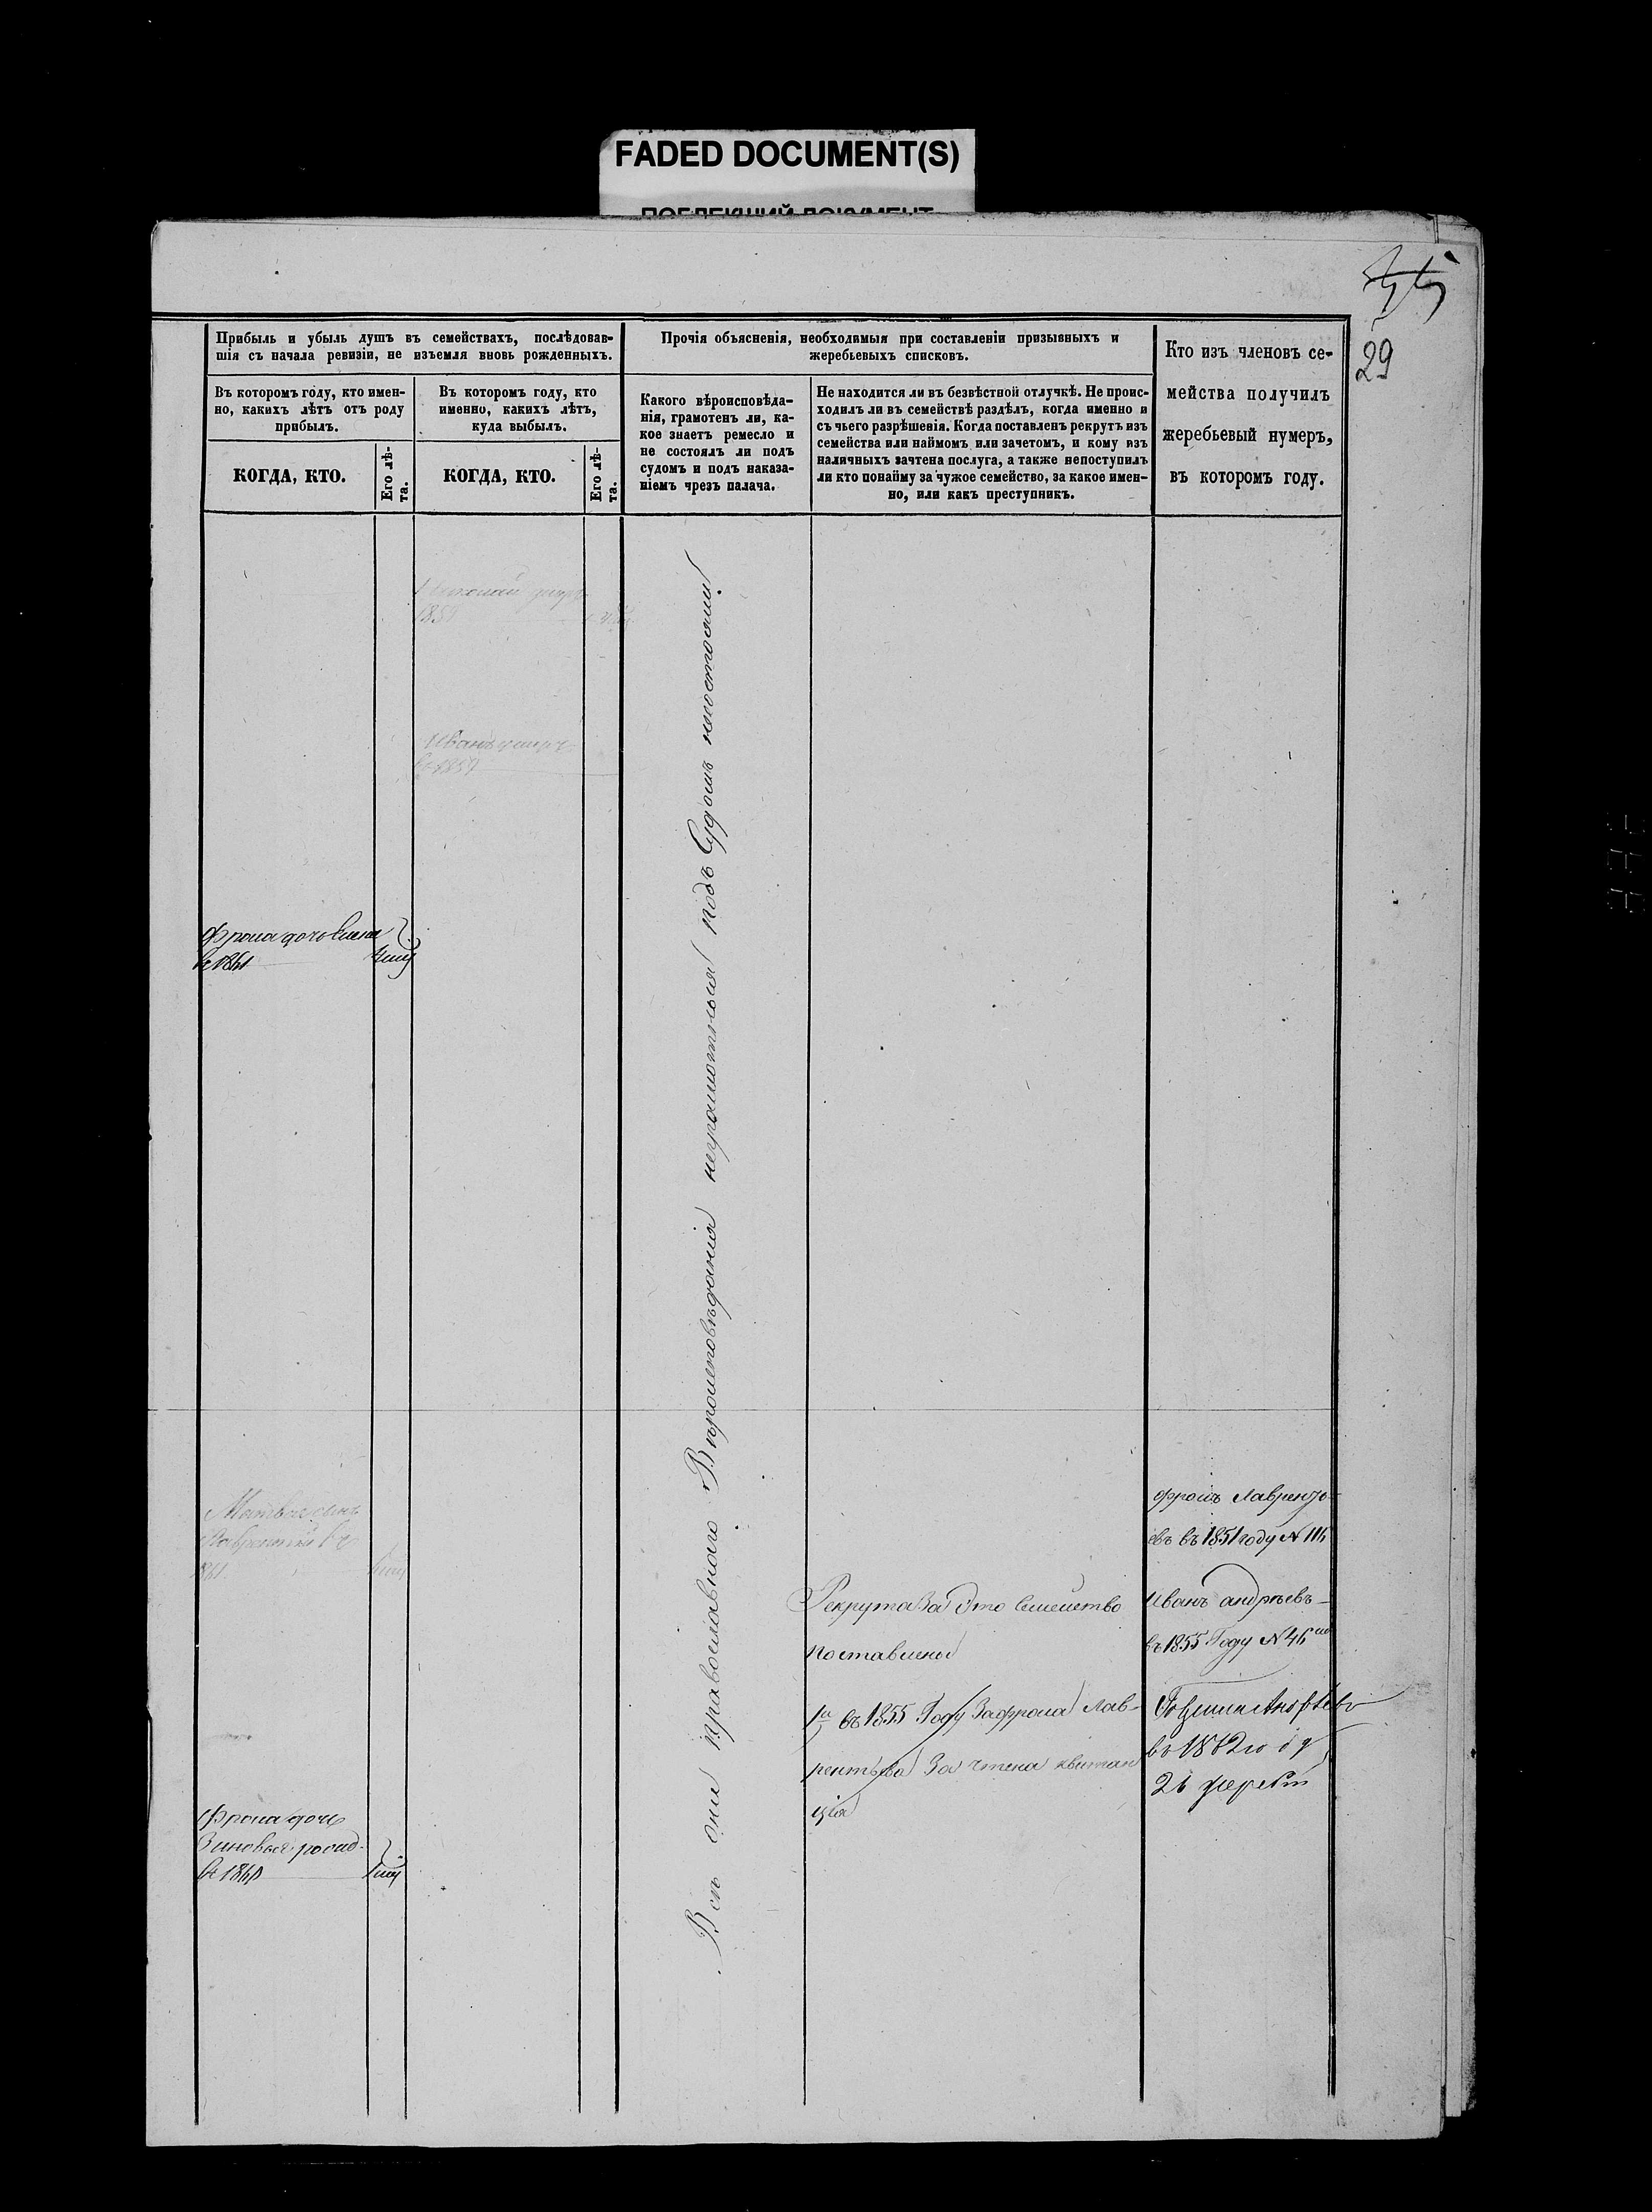 FADED DOCUMENT(S)
29
Прибыль и убыль душъ въ семействахъ, послѣдовав-
шія съ начала ревизіи, не изъемля вновь рожденныхъ.
Въ которомъ году, кто имен-
но, какихъ лѣтъ отъ роду
прибылъ.
КОГДА, КТО.
Его лѣ-
та.
Въ которомъ году, кто
именно, какихъ лѣтъ,
куда выбылъ.
КОГДА, КТО.
Его лѣ-
та.
Прочія объясненія, необходимыя при составленіи призывныхъ и
жеребьевыхъ списковъ.
Какого вѣроисповѣда-
нія, грамотенъ ли, ка-
кое знаетъ ремесло и
не состоялъ ли подъ
судомъ и подъ наказа-
ніемъ чрезъ палача.
Не находится ли въ безвѣстной отлучкѣ. Не проис-
ходилъ ли въ семействѣ раздѣлъ, когда именно и
съ чьего разрѣшенія. Когда поставленъ рекрутъ изъ
семейства или наймомъ или зачетомъ, и кому изъ
наличныхъ зачтена послуга, а также непоступилъ
ли кто понайму за чужое семейство, за какое имен-
но, или какъ преступникъ.
Кто изъ членовъ се-
мейства получилъ
жеребьевый нумеръ,
въ которомъ году.
умеръ
Иванъ умеръ
в 1857
Фрола дочь Елена
в 1861
Всѣ они православнаго Вѣроисповѣданія неграмотныя подъ Судомъ несостояли
Матвея сынъ
Лаврентий въ
1861
Фрола дочь
Зиновья
в 186
Рекрута За Это Семейство
поставлено
въ 1855 Году За фрола Лав-
рентьева За чтена квитан
ція
Фролъ Лавренть-
евъ въ 1851 году N 116
Иванъ андрѣевъ
въ 1855 Году N 46
в 1862